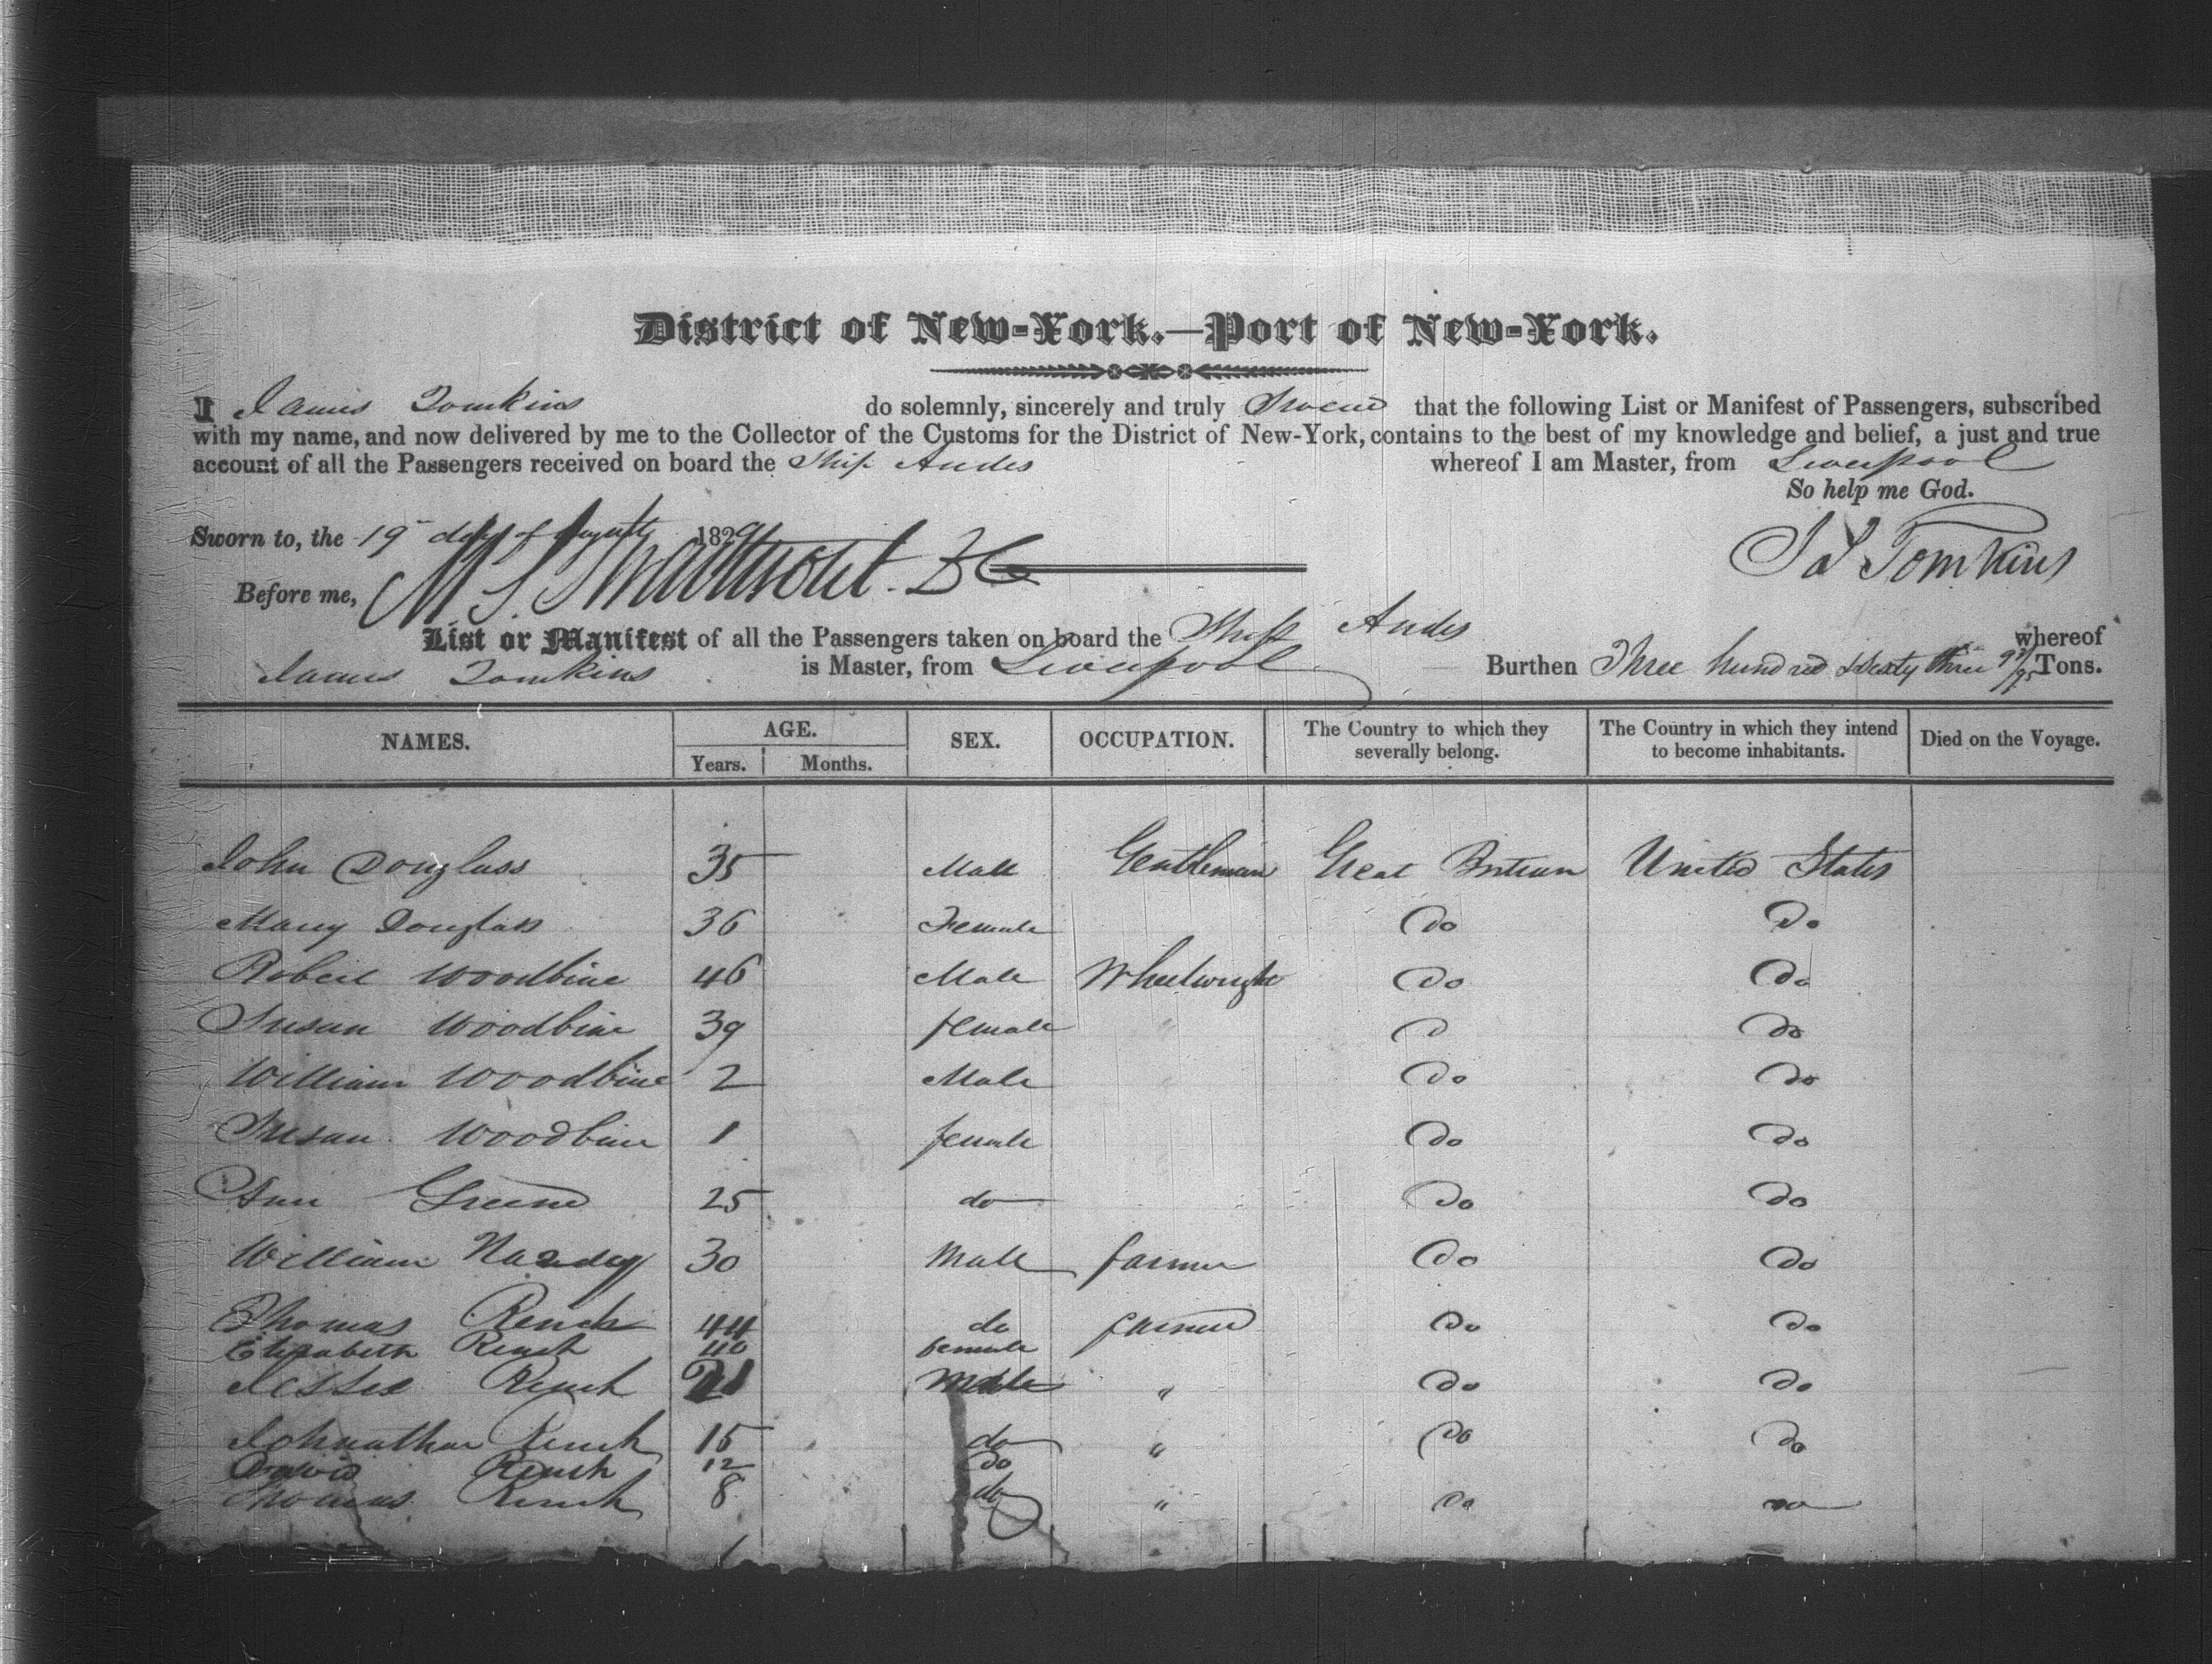 District of New-York.—Port of New-York.
I James Tomkins do solemnly, sincerely and truly Swear that the following List or Manifest of Passengers, subscribed
with my name, and now delivered by me to the Collector of the Customs for the District of New-York, contains to the best of my knowledge and belief, a just and true
account of all the Passengers received on board the Ship Andes whereof I am Master, from Liverpool
So help me God.
Sworn to, the 19 day of August 1829
Js Tomkins
Before me, M. S. Swartwout
List or Manifest of all the Passengers taken on board the Ship Andes whereof
James Tomkins is Master, from Liverpool Burthen Three hundred Seventy three /95 Tons.
NAMES. AGE. SEX. OCCUPATION. The Country to which they severally belong. The Country in which they intend to become inhabitants. Died on the Voyage.
Years. Months.
John Douglass 35 Male Gentleman Great Britian United States
Mary Douglass 36 Female Do Do
Robert Woodbine 46 Male Wheelwright Do Do
Susan Woodbine 39 female D Do
William Woodbine 2 Male Do Do
Susan Woodbine 1 female Do Do
Ann Greene 25 do Do Do
William 30 Male farmer Do Do
Thomas Rench 44 do farmer Do Do
Elizabeth Rench 40 female
Jesse Rench 21 Male " Do Do
Johnathan Rench 15 do " Do Do
David Rench 12 Do
Thomas Rench 8 do " Do do